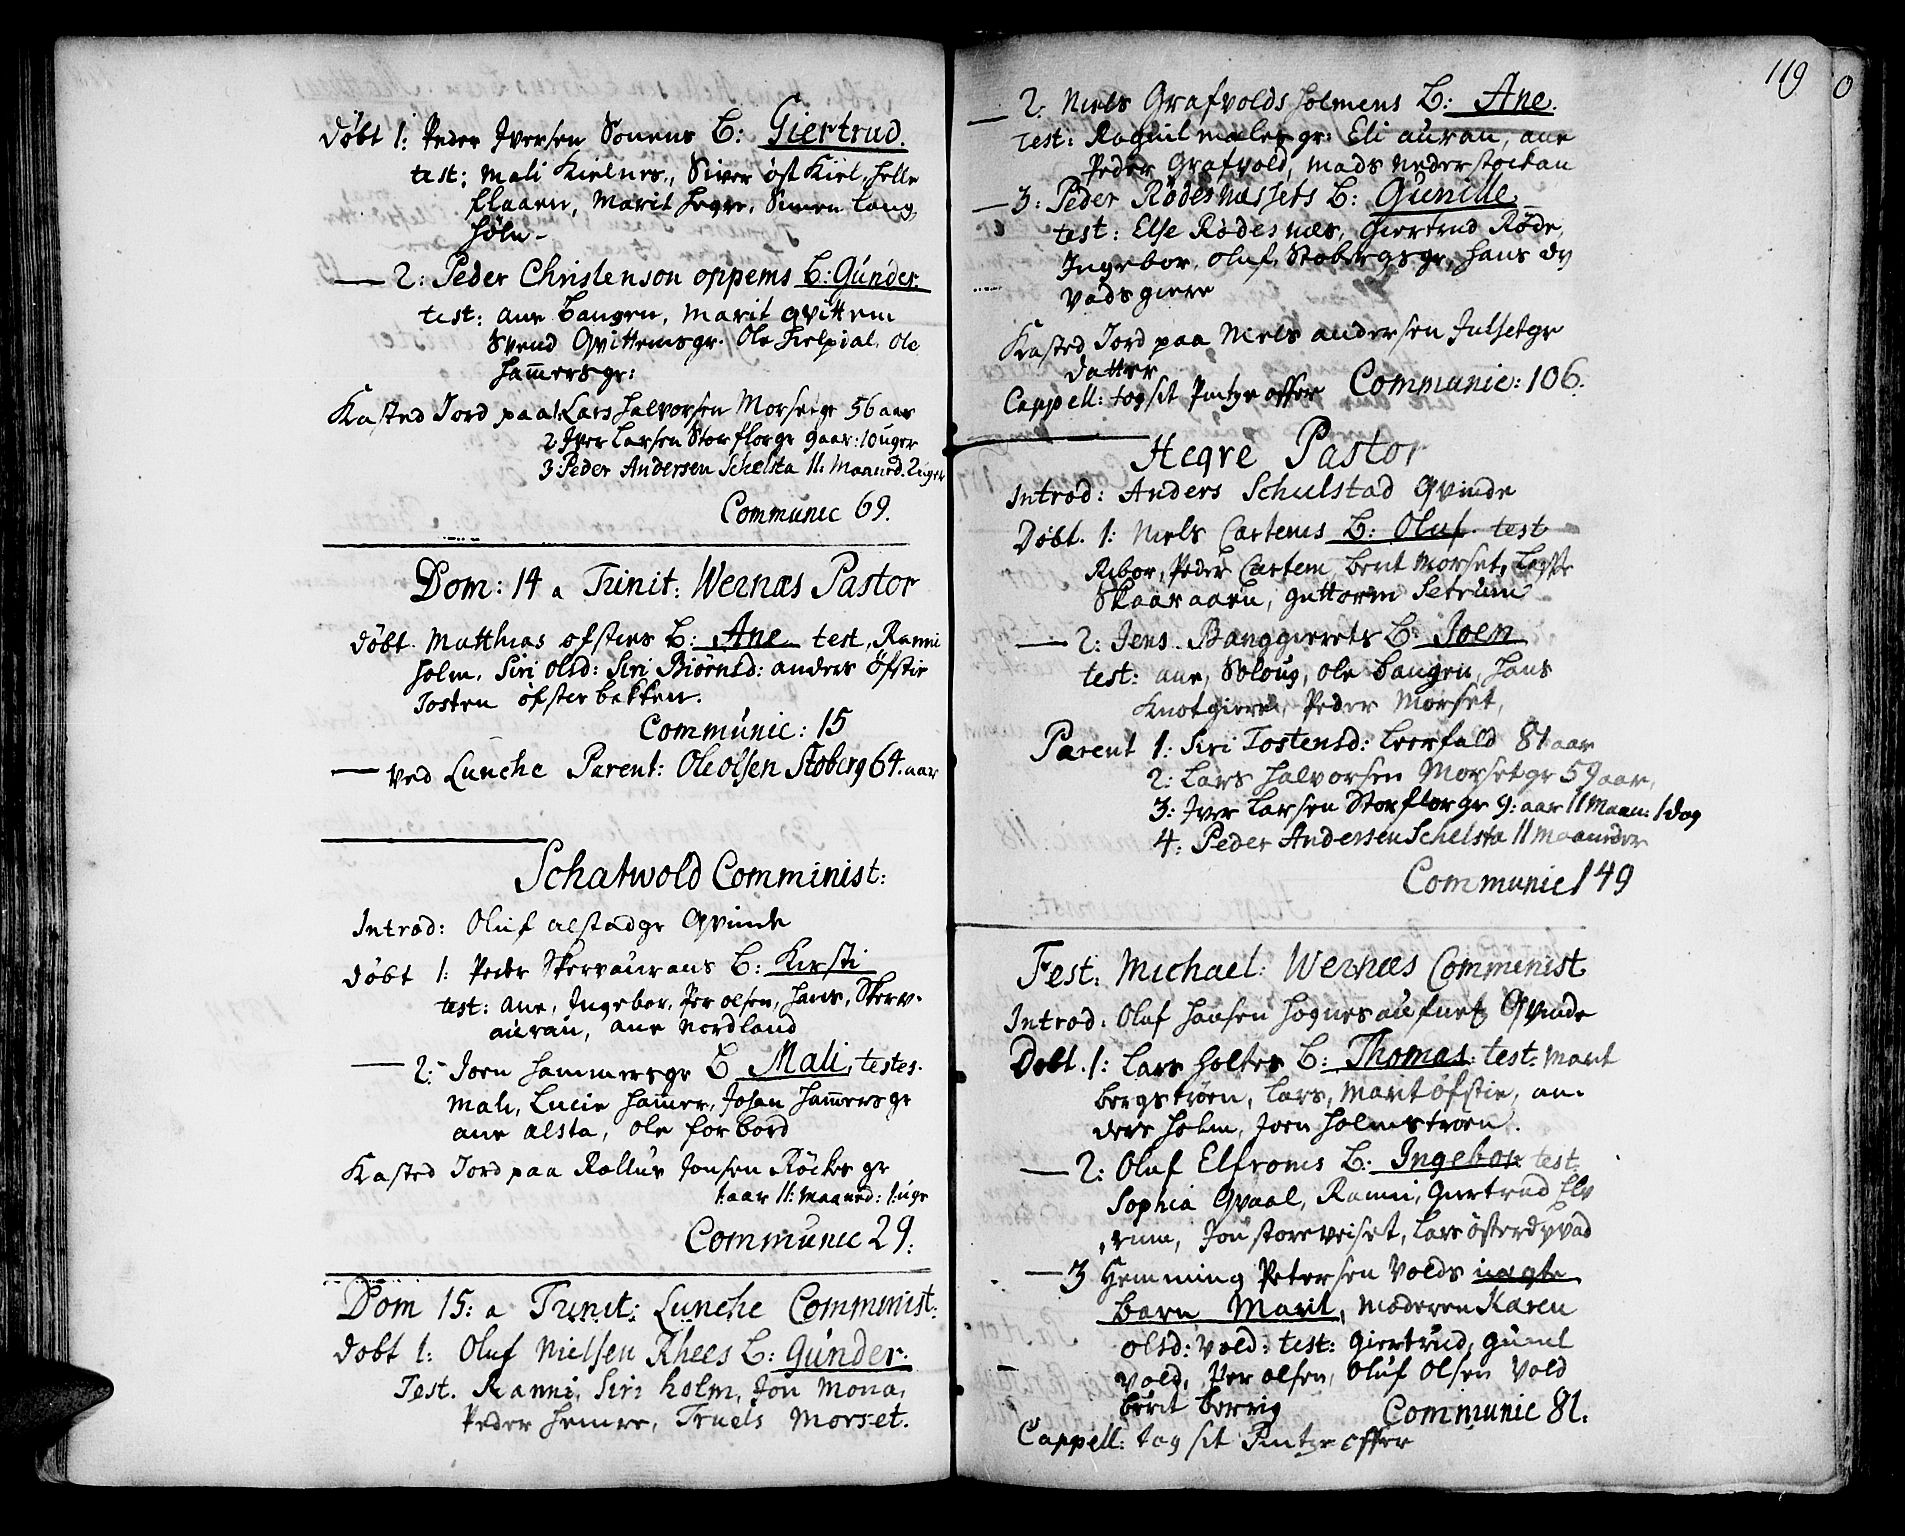 Døbt 1: Peder Iversen Sonens B: Giertrud.
test: Mali Kielnes, Siver øst Kiel, Helle
flaaen, Marit Hegre, Simen Lang
höln -
— 2: Peder Christenson oppems B: Gúnder.
test: ane Bangen, Marit qvittem
Svend Qvittemsgr. Ole Fielpial, Ole
Ham̄ersgr:
Kasted Jord paa 1: Lars Halvorsen Morsetgr 56 aar
2 Iver Larsen Storflorgr 9 aar: 10 uger
3: Peder Andersen Schelsta 11: Maaned. 2 uger
Communic 69.
Dom: 14 a Trinit: Wernæs Pastor
døbt. Matthias ofsties B: Ane test, Ranni
holm, Siri olsd: Siri Biörnsd: anders öfstie
Tosten öfsterbekken.
Communic: 15
— ved Lunche Parent: Ole olsen Stoberg 64. aar
Schatwold Comminist:
Introd: Oluf alstadgr Qvinde
døbt 1: Peder Skervaurans B: Kirsti
test: ane, Ingebor, Per olsen, Hans, Skerv-
auran, ane Nordland
— 2: Joen Hammersgr B Mali, testes.
Mali, Lucie Ham̄er, Johan Ham̄ersgr
ane alsta, ole forbord
Kasted Jord paa Rollúv Jonsen Röckes gr
1: aar 11: Maaned: 1: uge
Communic 29.
Dom 15: a Trinit: Lunche Comminist:
døbt 1: Oluf Nielsen Rhees B: Gúnder.
Test. Ranni, Siri holm, Jon Mona,
Peder Hemre, Truels Morset.
119
— 2. Niels Grafvolds Holmens B: Ane.
Test: Ragnil mælesgr: Eli auran, ane
Peder Grafvold, Mads Nederstockan
— 3: Peder Rødesnæssets B: Gunille
test: Else Rødesnæs, Giertrud Røde,
Ingebor, Oluf, Stobergsgr, Hans dy
vadsgiere
Kasted Jord paa Niels andersen Julsetgr
datter
Cappell: tog sit Pintze offer Communic: 106.
Hegre Pastor
Introd: Anders Schulstad Qvinde
Døbt. 1: Niels Cartems B: Oluf. test
Rebor, Peder Cartem, berit Morset,
Skaaraaen, guttorm Setrum
— 2: Jens Banggierets B: Joen
test: ane, Soloug, ole Bangen, Hans
Knotgieret, Peder Morset,
Parent 1: Siri Tostensd: Leerfald 81 aar
2: Lars Halvorsen Morsetgr 59 aar,
3: Iver Larsen Storflorgr 9: aar 11 Maan: 1 dag
4: Peder Andersen Schelsta 11 maaneder
Communic 149
Fest. Michael: Wernæs Comminist
Introd: Oluf Hansen Qvinde
Døbt. 1: Lars Holtes B: Thomas: test: Marit
Bergstrøen, Lars, Marit öfstie, an-
ders Holm, Joen Holmstroen.
— 2: Oluf Elfroms B: Ingebor. test.
Sophia Qvaal, Ranni, Giertrud Elv
rum, Jon storeveiset, Lars österdyvad
— 3 Hemming Petersen Volds uægte
barn Marit, moderen Karen
olsd: vold: test: Giertrud, Gunil
vold, Per olsen, Oluf olsen Vold
berit berrig Communic 81.
Cappell: tog sit Pintze offer